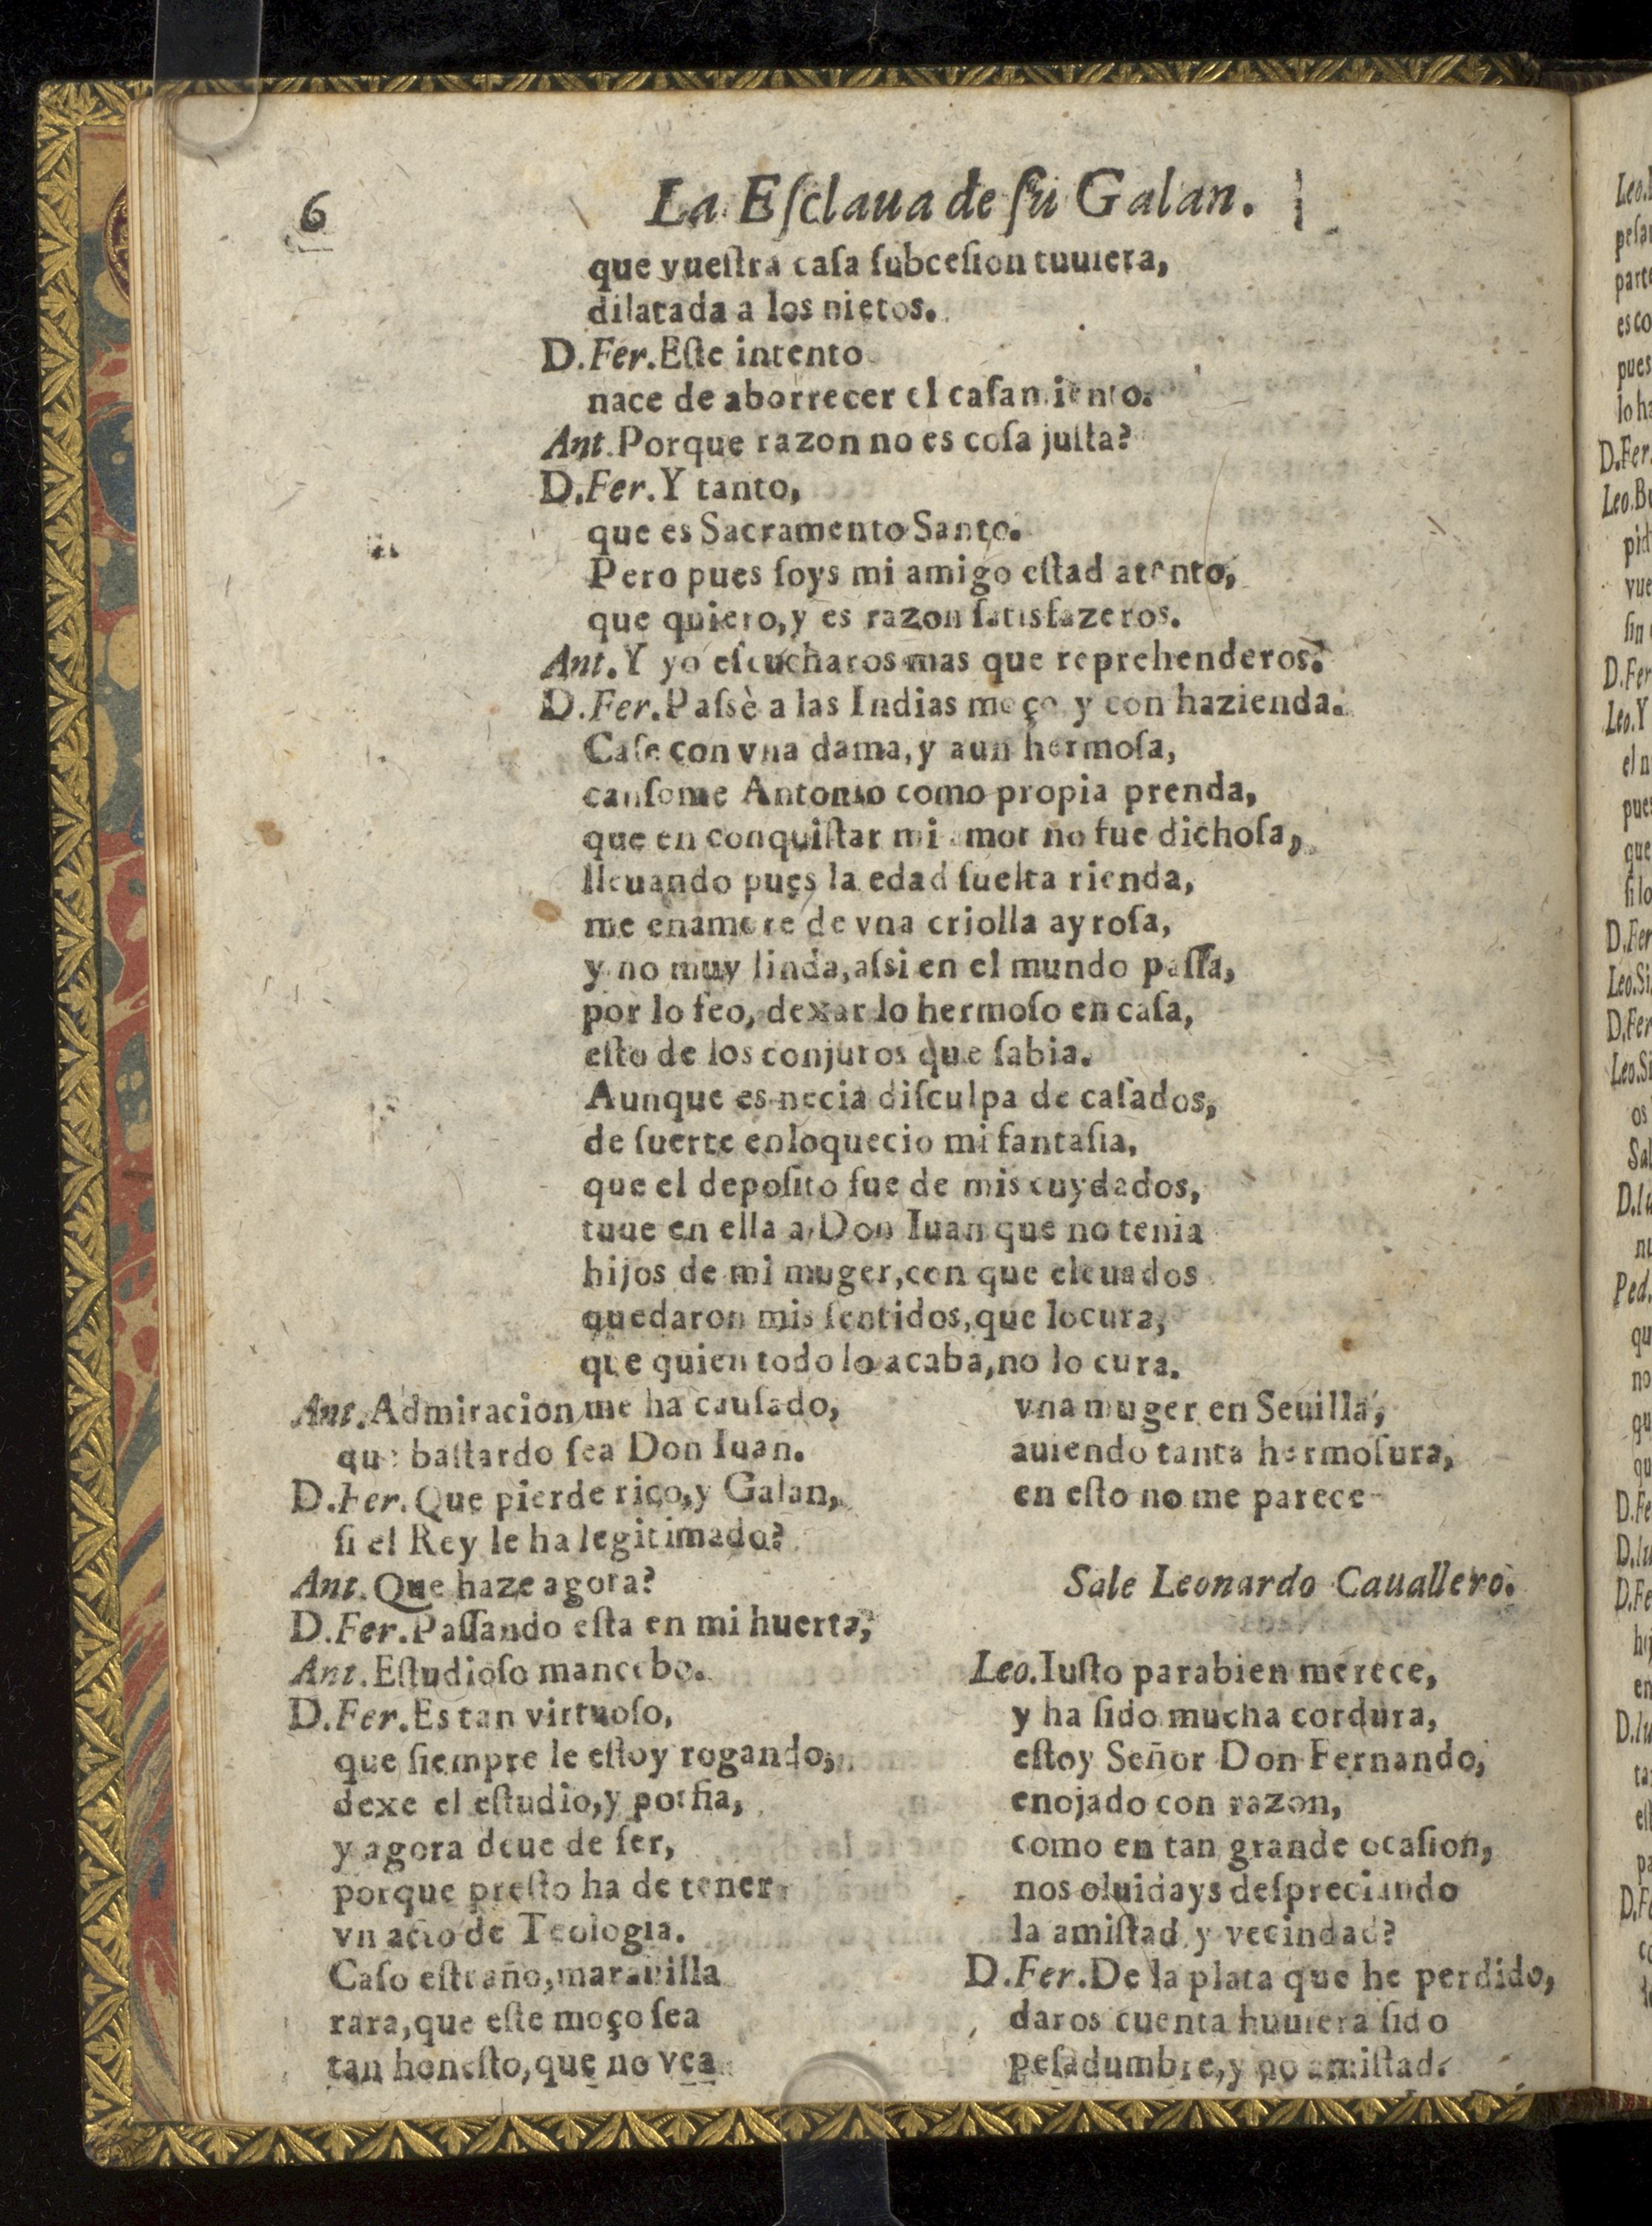 6
La Esclaua de su Galan.
que vuestra casa subcesion tuuiera,
dilatada a los nietos.
D.Fer.Este intento
nace de aborrecer el casamiento.
Ant.Porque razon no es cosa justa?
D.Fer.Y tanto,
que es Sacramento Santo.
Pero pues soys mi amigo estad atento,
que quiero,y es razon satisfazeros.
Ant.Y yo escucharos mas que reprehenderos.
D.Fer.Passè a las Indias moço, y con hazienda.
Case con vna dama,y aun hermosa,
cansome Antonio como propia prenda,
que en conquistar mi amor no fue dichosa,
lleuando pues la edad suelta rienda,
me enamore de vna criolla ayrosa,
y no muy linda,assi en el mundo passa,
por lo feo, dexar lo hermoso en casa,
esto de los conjuros que sabia.
Aunque es necia disculpa de casados,
de suerte enloquecio mi fantasia,
que el deposito fue de mis cuydados,
tuue en ella a Don Iuan que no tenia
hijos de mi muger,con que eleuados
quedaron mis sentidos,que locura,
que quien todo lo acaba,no lo cura.
Ant.Admiracion me ha causado,
que bastardo sea Don Iuan.
D.Fer.Que pierde rico,y Galan,
si el Rey le ha legitimado?
Ant.Que haze agora?
D.Fer.Passando esta en mi huerta,
Ant.Estudioso mancebo.
D.Fer.Es tan virtuoso,
que siempre le estoy rogando,
dexe el estudio,y porfia,
y agora deue de ser,
porque presto ha de tener
vn acto de Teologia.
Caso estraño,marauilla
rara,que este moço sea
tan honesto,que no vea
vna muger en Seuilla,
auiendo tanta hermosura,
en esto no me parece-
Sale Leonardo Cauallero.
Leo.Iusto parabien merece,
y ha sido mucha cordura,
estoy Señor Don Fernando,
enojado con razon,
como en tan grande ocasion,
nos oluidays despreciando
la amistad y vecindad?
D.Fer.De la plata que he perdido,
daros cuenta huuiera sido
pesadumbre,y no amistad.